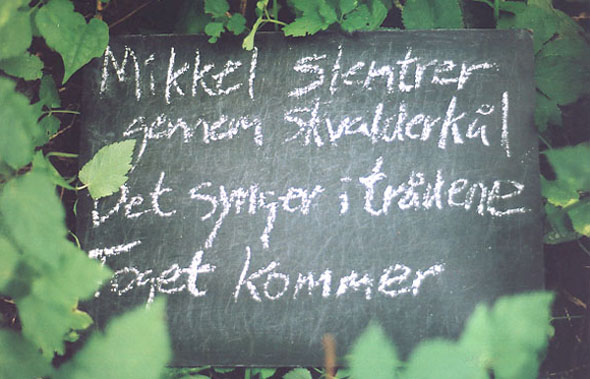 Mikkel slentrer
gennem skvalderkål
Det synger i trådene
Toget kommer